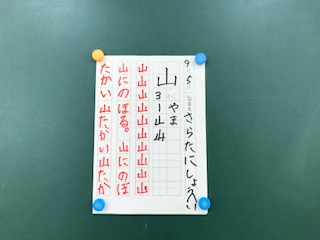 9 5 なまえ さらたにしょうへい
山 やま
3
1 山 山
山山山山山山山山山山
山にのぼる。山にのぼ
たかい山たかい山たか